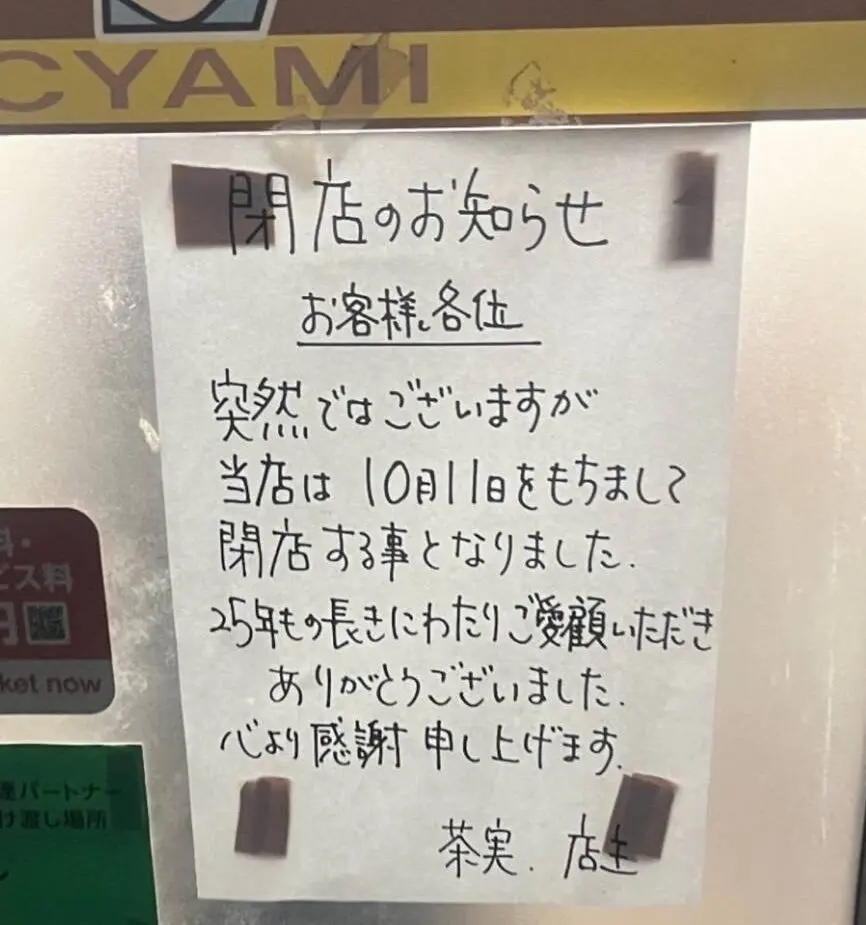 CYAMI
閉店のお知らせ
お客様各位
突然ではございますが
当店は10月11日をもちまして
閉店する事となりました.
25年もの長きにわたりご愛顧いただき
ありがとうございました.
心より感謝申し上げます.
茶実. 店主
料・
ビス料
円
ket now
達パートナー
け渡し場所